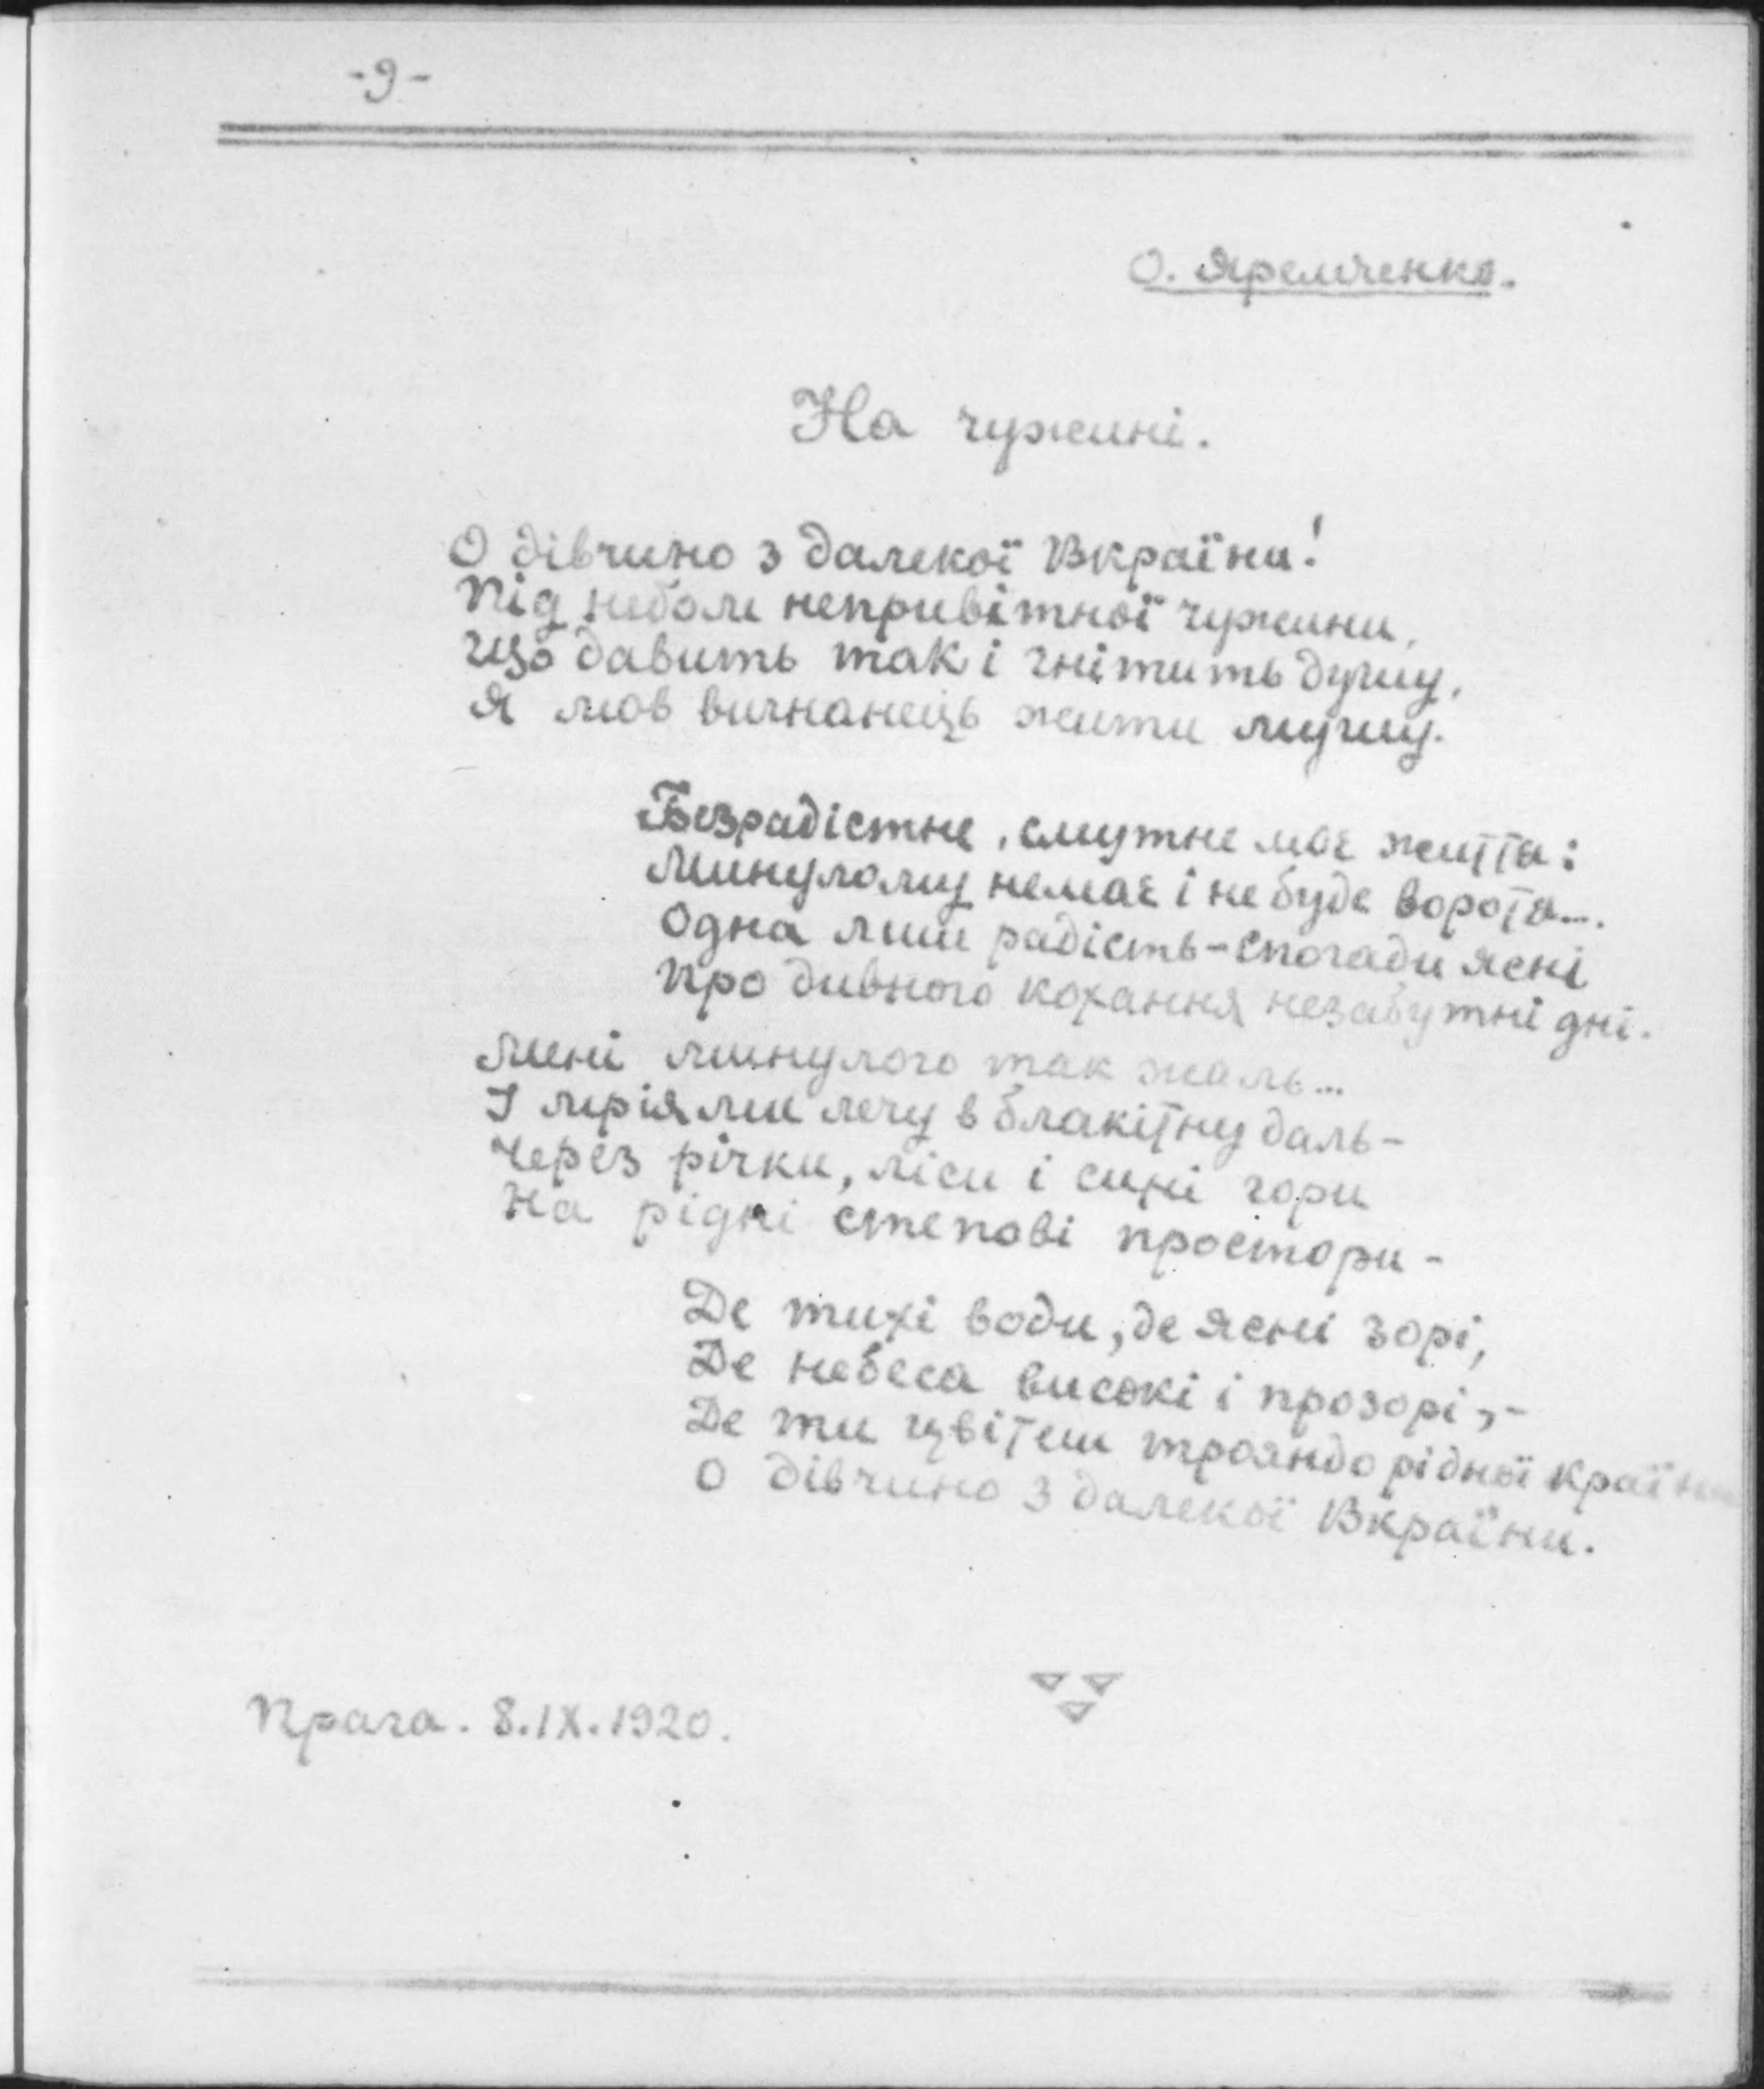 -9-
О. Яремченко.
На чужині.
О дівчино з далекої Вкраїни!
Під небом непривітної чужини,
Що давить так і гнітить душу,
Я мов вигнанець жити мушу.
Безрадістне, смутне моє життя:
Минулому немає і не буде вороття...
Одна лиш радість-спогади ясні
Про дивного кохання незабутні дні.
Мині минулого так жаль...
І мріями лечу в блакітну даль-
Через річки, ліси і сині гори
На рідні степові простори-
Де тихі води, де ясні зорі,
Де небеса високі і прозорі,-
Де ти цвітеш трояндо рідної країни
О дівчино з далекої Вкраїни.
Прага. 8.IX.1920.